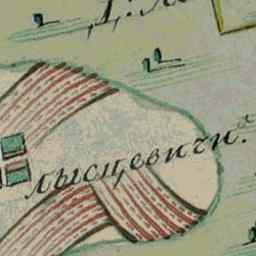 лысцевичи.